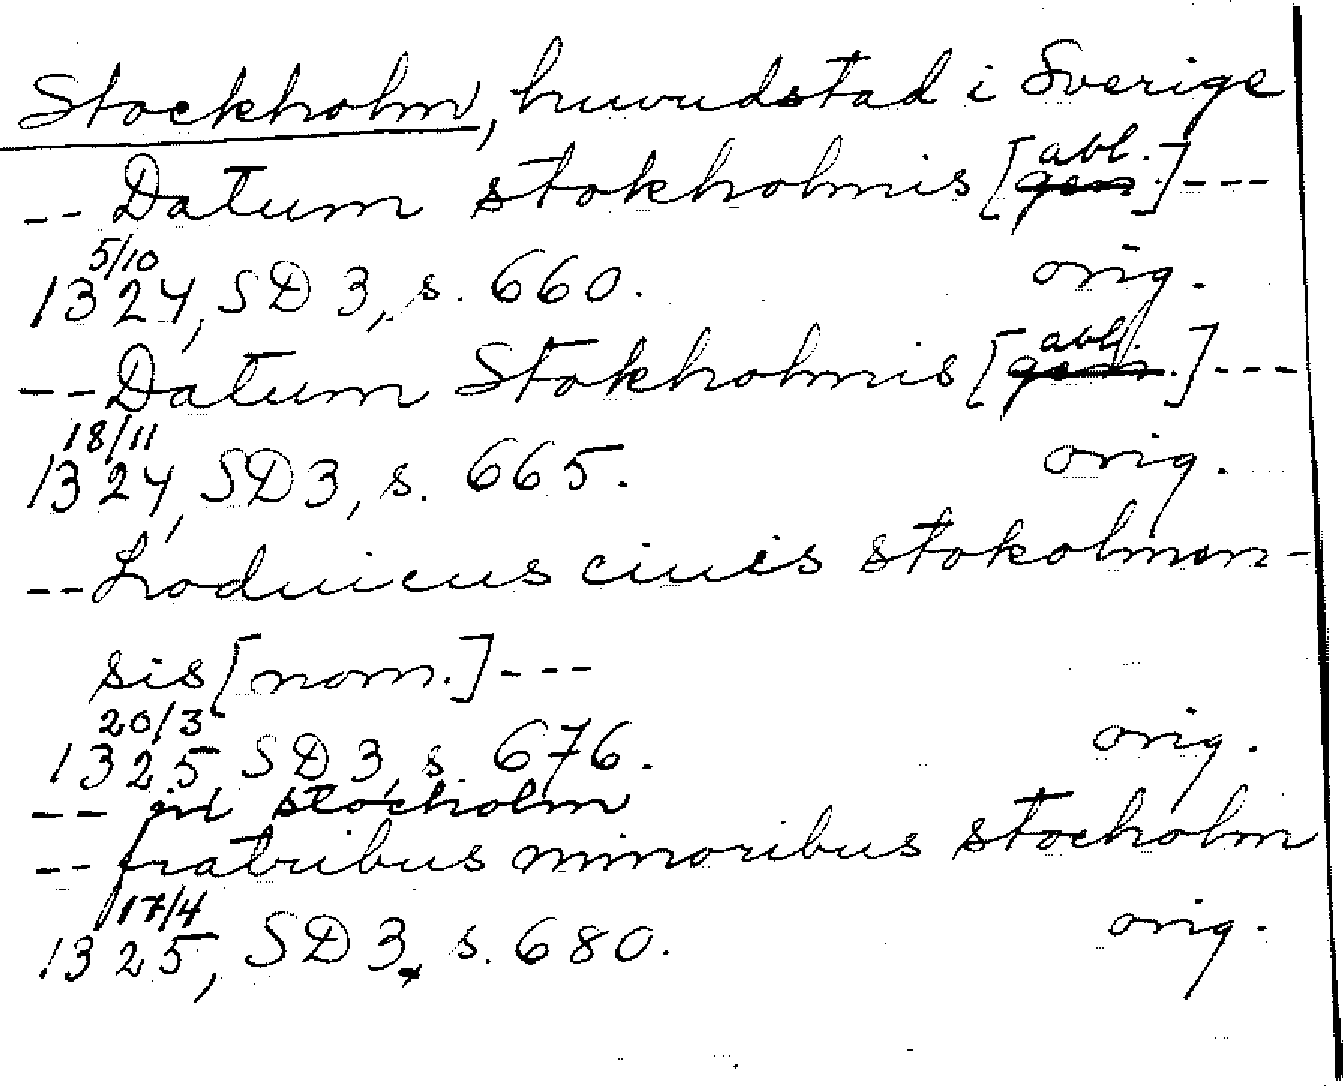 Stockholm, huvudstad i Sverige
abl.
-- Datum stokholmis [gen.] ---
5/10
1324, SD 3, s. 660. orig.
abl.
-- Datum Stokholmis [gen.] ---
18/11
1324, SD 3, s. 665. orig.
-- Loduicus ciuis stokolmen-
sis [nom.] ---
20/3
1325 SD 3, s. 676. orig.
-- stocholm
-- fratribus minoribus stocholm
17/4
1325, SD 3, s. 680. orig.